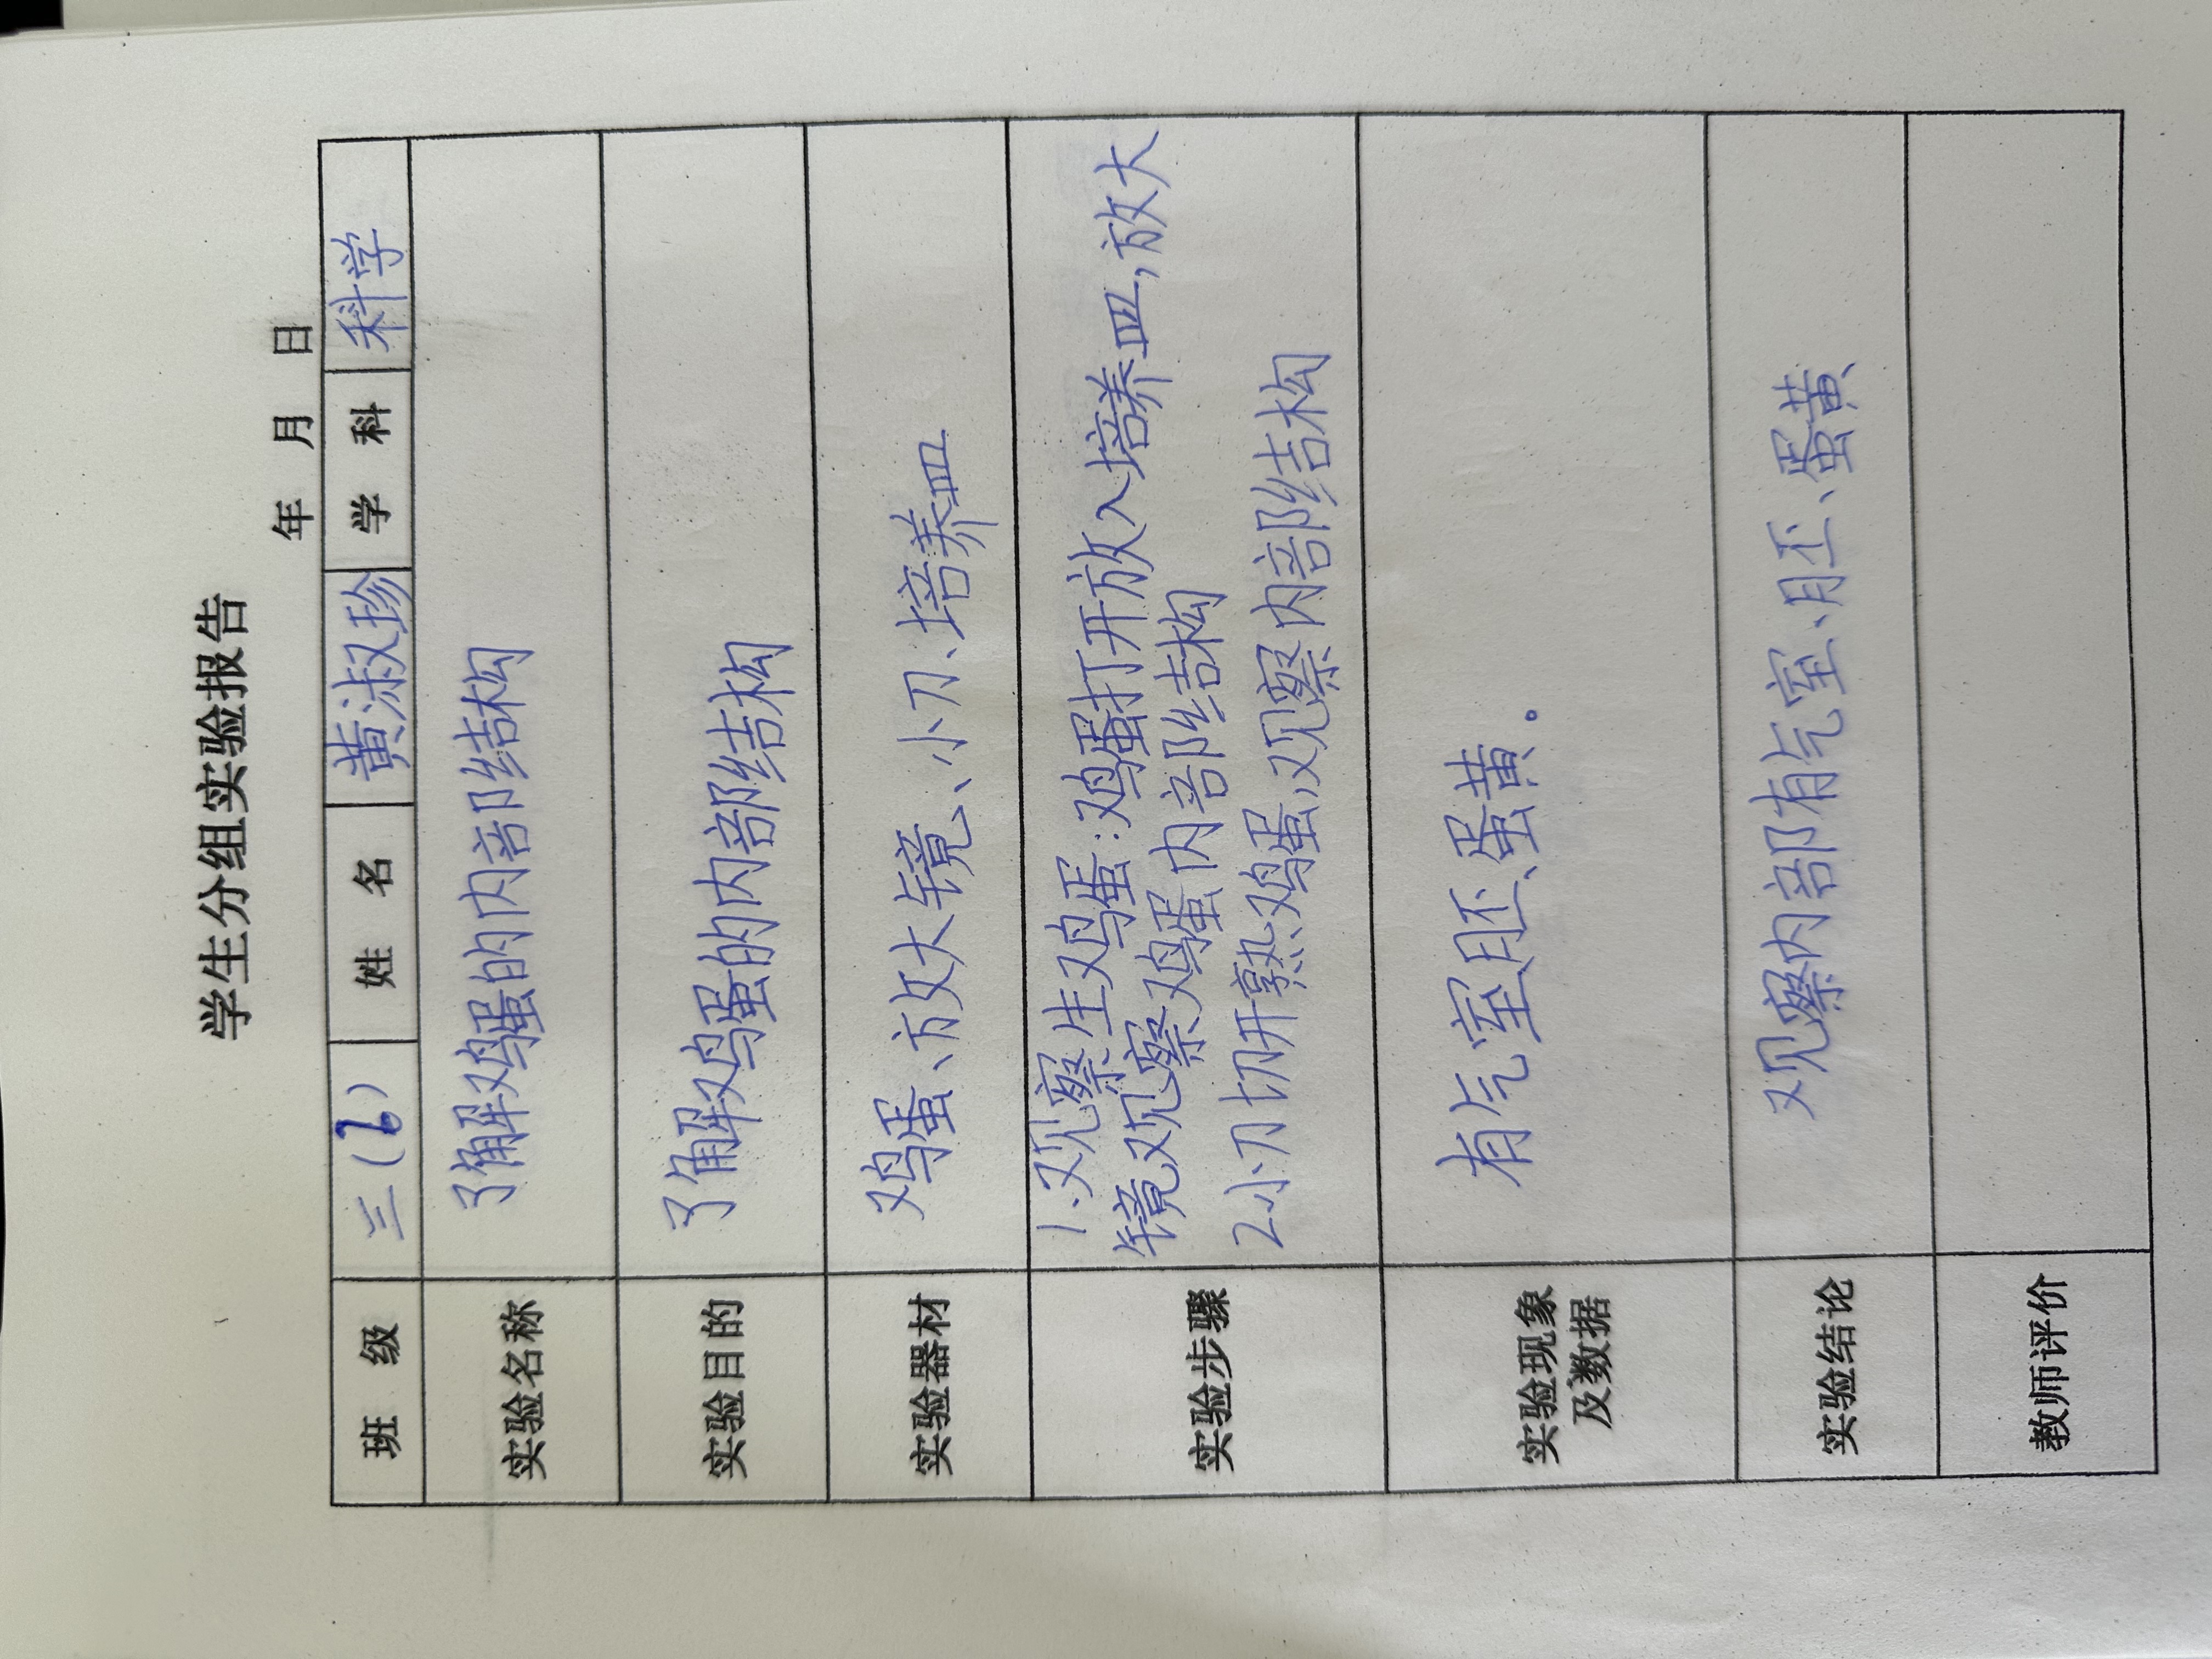 学生分组实验报告
年 月 日
班 级 三(6) 姓 名 黄淑珍 学 科 科学
实验名称 了解鸡蛋的内部结构
实验目的 了解鸡蛋的内部结构
实验器材 鸡蛋、放大镜、小刀、培养皿
实验步骤 1.观察生鸡蛋:鸡蛋打开放入培养皿,放大
镜观察鸡蛋内部结构
2小刀切开熟鸡蛋,观察内部结构
实验现象
及数据 有气室胚、蛋黄。
实验结论 观察内部有气室、胚、蛋黄
教师评价